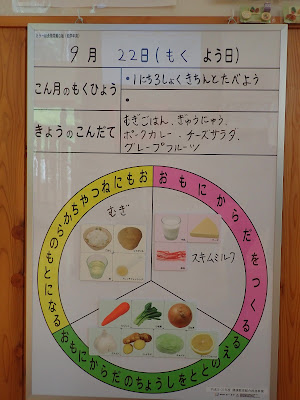 9月 22日(もく よう日)
こん月のもくひょう
・1にち3しょくきちんとたべよう
・
きょうのこんだて
むぎごはん、ぎゅうにゅう、
ポークカレー、チーズサラダ、
グレープフルーツ
おもにねつやちからのもとになる
おもにからだをつくる
むぎ
スキムミルク
おもにからだのちょうしをととのえる